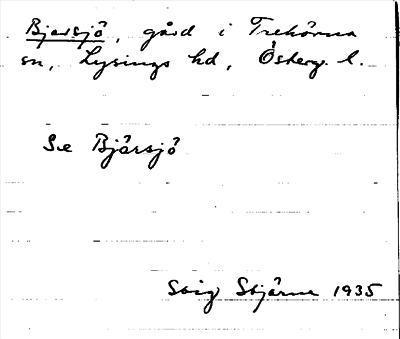 Bjersjö, gård i Trehörna
sn, Lysings hd, Österg. l.
Se Bjärsjö
Stig Stjärne 1935